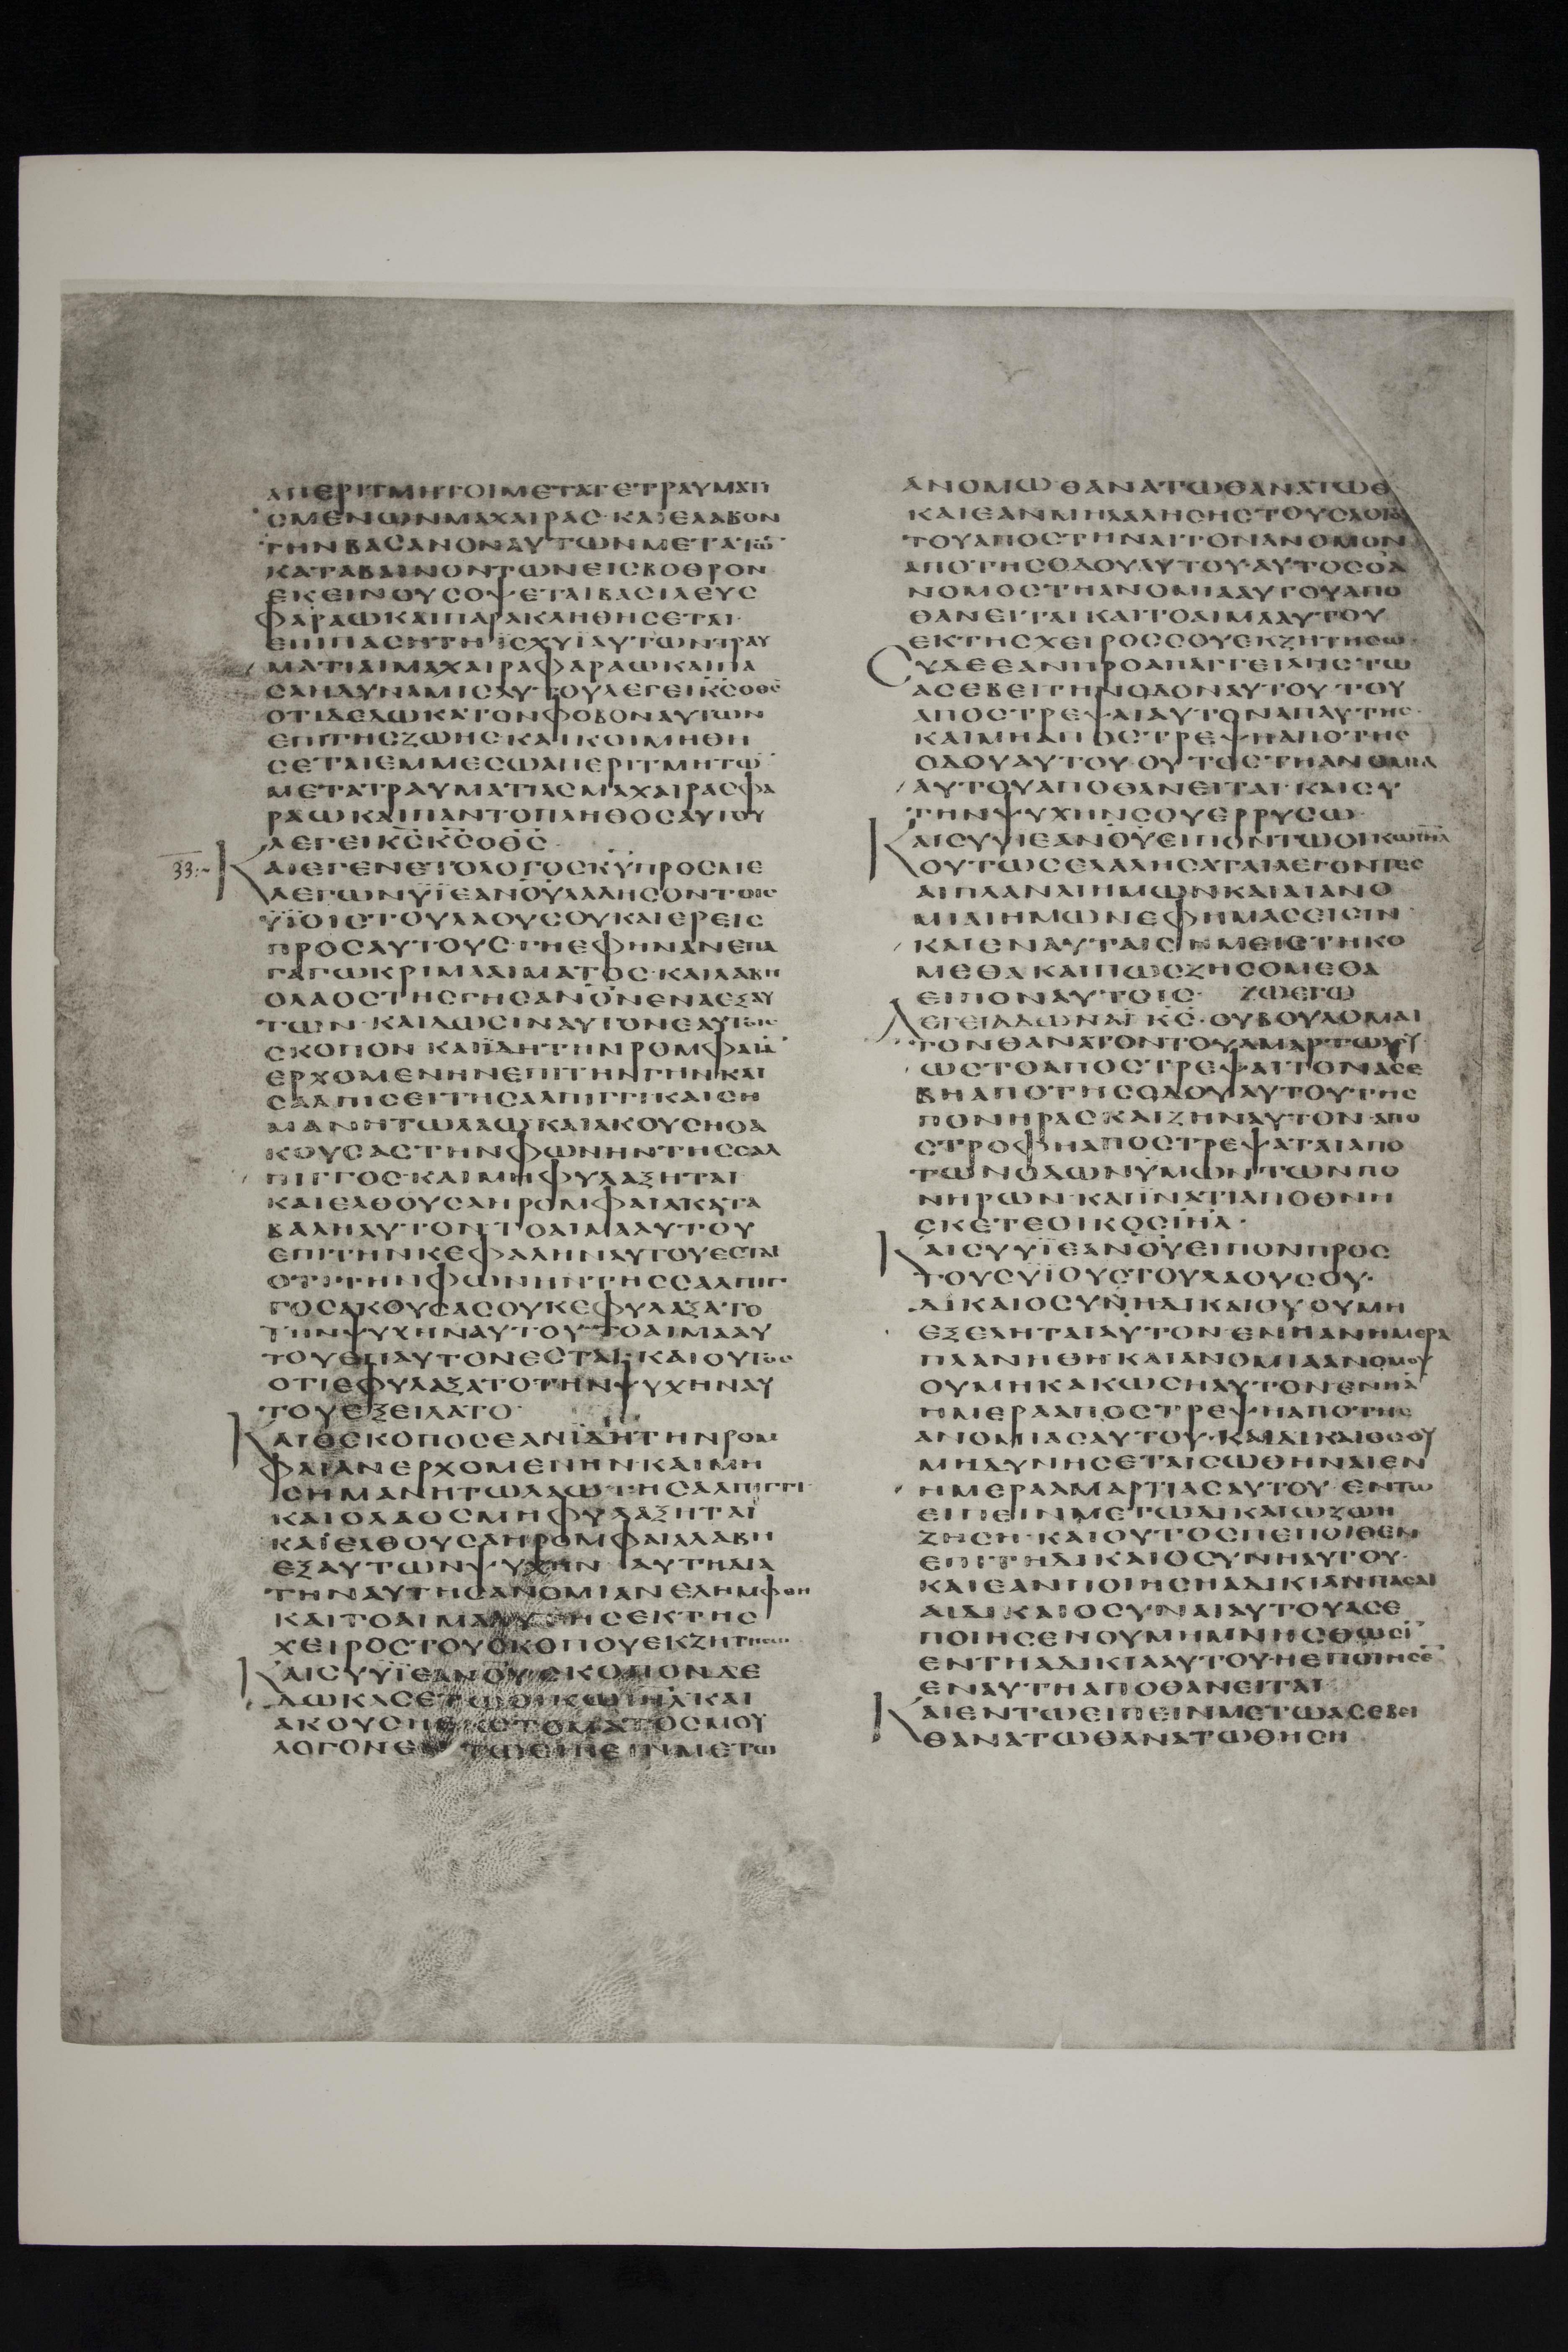 ΑΠΕΡΙΤΜΗΤΟΙΜΕΤΑΤΕΤΡΑΥΜΑΤΙ
ΣΜΕΝΩΝΜΑΧΑΙΡΑΣ·ΚΑΙΕΛΑΒΟΝ
ΤΗΝΒΑΣΑΝΟΝΑΥΤΩΝΜΕΤΑΤΩ̅
ΚΑΤΑΒΑΙΝΟΝΤΩΝΕΙΣΒΟΘΡΟΝ
ΕΚΕΙΝΟΥΣΟΨΕΤΑΙΒΑΣΙΛΕΥΣ
ΦΑΡΑΩΚΑΙΠΑΡΑΚΛΗΘΗΣΕΤΑΙ·
ΕΠΙΠΑΣΗΤΗΪΣΧΥΪΑΥΤΩΝΤΡΑΥ
ΜΑΤΙΑΙΜΑΧΑΙΡΑΦΑΡΑΩΚΑΙΠΑ
ΣΑΗΔΥΝΑΜΙΣΑΥΤΟΥΛΕΓΕΙΚ̅Σ̅ΟΘ̅Σ̅
ΟΤΙΔΕΔΩΚΑΤΟΝΦΟΒΟΝΑΥΤΩΝ
ΕΠΙΤΗΣΖΩΗΣ·ΚΑΙΚΟΙΜΗΘΗ
ΣΕΤΑΙΕΜΜΕΣΩΑΠΕΡΙΤΜΗΤΩ̅
ΜΕΤΑΤΡΑΥΜΑΤΙΑΣΜΑΧΑΙΡΑΣΦΑ
ΡΑΩΚΑΙΠΑΝΤΟΠΛΗΘΟΣΑΥΤΟΥ
ΛΕΓΕΙΚ̅Σ̅Κ̅Σ̅ΟΘ̅Σ̅
33:~ ΚΑΙΕΓΕΝΕΤΟΛΟΓΟΣΚ̅Υ̅ΠΡΟΣΜΕ
ΛΕΓΩΝΥΪΕΑΝΟΥΛΑΛΗΣΟΝΤΟΙΣ
ΥΪΟΙΣΤΟΥΛΑΟΥΣΟΥΚΑΙΕΡΕΙΣ
ΠΡΟΣΑΥΤΟΥΣ·ΓΗΕΦΗΝΑΝΕΠΑ
ΓΑΓΩΚΡΙΜΑΑΙΜΑΤΟΣ·ΚΑΙΛΑΒΗ
ΟΛΑΟΣΤΗΣΓΗΣΑΝΟΝΕΝΑΕΞΑΥ
ΤΩΝ·ΚΑΙΔΩΣΙΝΑΥΤΟΝΕΑΥΤΟΙΣ
ΣΚΟΠΟΝ·ΚΑΙΪΔΗΤΗΝΡΟΜΦΑΙΑ̅
ΕΡΧΟΜΕΝΗΝΕΠΙΤΗΝΓΗΝΚΑΙ
ΣΑΛΠΙΣΕΙΤΗΣΑΛΠΙΓΓΙΚΑΙΣΗ
ΜΑΝΗΤΩΛΑΩΚΑΙΑΚΟΥΣΗΟΑ
ΚΟΥΣΑΣΤΗΝΦΩΝΗΝΤΗΣΣΑΛ
ΠΙΓΓΟΣ·ΚΑΙΜΗΦΥΛΑΞΗΤΑΙ
ΚΑΙΕΛΘΟΥΣΑΗΡΟΜΦΑΙΑΚΑΤΑ
ΒΑΛΗΑΥΤΟΝΤΟΑΙΜΑΑΥΤΟΥ
ΕΠΙΤΗΝΚΕΦΑΛΗΝΑΥΤΟΥΕΣΤΑΙ
ΟΤΙΤΗΝΦΩΝΗΝΤΗΣΣΑΛΠΙΓ
ΓΟΣΑΚΟΥΣΑΣΟΥΚΕΦΥΛΑΞΑΤΟ
ΤΗΝΨΥΧΗΝΑΥΤΟΥΤΟΑΙΜΑΑΥ
ΤΟΥΕΠΑΥΤΟΝΕΣΤΑΙ·ΚΑΙΟΥΤΟΣ
ΟΤΙΕΦΥΛΑΞΑΤΟΤΗΝΨΥΧΗΝΑΥ
ΤΟΥΕΞΕΙΛΑΤΟ·
ΚΑΙΟΣΚΟΠΟΣΕΑΝΪΔΗΤΗΝΡΟΜ
ΦΑΙΑΝΕΡΧΟΜΕΝΗΝ·ΚΑΙΜΗ
ΣΗΜΑΝΗΤΩΛΑΩΤΗΣΑΛΠΙΓΓΙ·
ΚΑΙΟΛΑΟΣΜΗΦΥΛΑΞΗΤΑΙ
ΚΑΙΕΛΘΟΥΣΑΗΡΟΜΦΑΙΑΛΑΒΗ
ΕΞΑΥΤΩΝΨΥΧΗΝ ΑΥΤΗΔΙΑ
ΤΗΝΑΥΤΗΣΑΝΟΜΙΑΝΕΛΗΜΦΘΗ
ΚΑΙΤΟΑΙΜΑΑΥΤΗΣΕΚΤΗΣ
ΧΕΙΡΟΣΤΟΥΣΚΟΠΟΥΕΚΖΗΤΗΣΩ
ΚΑΙΣΥΥΪΕΑΝΟΥΣΚΟΠΟΝΔΕ
ΔΩΚΑΣΕΤΩΟΙΚΩΙ̅Η̅Λ̅ΚΑΙ
ΑΚΟΥΣΗΕΚΣΤΟΜΑΤΟΣΜΟΥ
ΛΟΓΟΝΕΝ ΤΩΕΙΠΕΙΝΜΕΤΩ
ΑΝΟΜΩ·ΘΑΝΑΤΩΘΑΝΑΤΩΘ
ΚΑΙΕΑΝΜΗΛΑΛΗΣΗΣΤΟΥΣΛΟΓ
ΤΟΥΑΠΟΣΤΗΝΑΙΤΟΝΑΝΟΜΟΝ
ΑΠΟΤΗΣΟΔΟΥΑΥΤΟΥ·ΑΥΤΟΣΟΑ
ΝΟΜΟΣΤΗΑΝΟΜΙΑΑΥΤΟΥΑΠΟ
ΘΑΝΕΙΤΑΙΚΑΙΤΟΑΙΜΑΑΥΤΟΥ
ΕΚΤΗΣΧΕΙΡΟΣΣΟΥΕΚΖΗΤΗΣΩ·
ΣΥΔΕΕΑΝΠΡΟΑΠΑΓΓΕΙΛΗΣΤΩ
ΑΣΕΒΕΙΤΗΝΟΔΟΝΑΥΤΟΥΤΟΥ
ΑΠΟΣΤΡΕΨΑΙΑΥΤΟΝΑΠΑΥΤΗΣ·
ΚΑΙΜΗΑΠΟΣΤΡΕΨΗΑΠΟΤΗΣ
ΟΔΟΥΑΥΤΟΥ·ΟΥΤΟΣΤΗΑΝΟΜΙΑ
ΑΥΤΟΥΑΠΟΘΑΝΕΙΤΑΙ·ΚΑΙΣΥ
ΤΗΝΨΥΧΗΝΣΟΥΕΡΡΥΣΩ·
ΚΑΙΣΥΥΪΕΑΝΟΥΕΙΠΟΝΤΩΟΙΚΩΙ̅Η̅Λ̅
ΟΥΤΩΣΕΛΑΛΗΣΑΤΑΙΛΕΓΟΝΤΕΣ
ΑΙΠΛΑΝΑΙΗΜΩΝΚΑΙΑΙΑΝΟ
ΜΙΑΙΗΜΩΝΕΦΗΜΑΣΕΙΣΙΝ·
ΚΑΙΕΝΑΥΤΑΙΣΗΜΕΙΣΤΗΚΟ
ΜΕΘΑΚΑΙΠΩΣΖΗΣΟΜΕΘΑ
ΕΙΠΟΝΑΥΤΟΙΣ· ΖΩΕΓΩ
ΛΕΓΕΙΑΔΩΝΑΪΚ̅Σ̅·ΟΥΒΟΥΛΟΜΑΙ
ΤΟΝΘΑΝΑΤΟΝΤΟΥΑΜΑΡΤΩΛΟΥ
ΩΣΤΟΑΠΟΣΤΡΕΨΑΙΤΟΝΑΣΕ
ΒΗΑΠΟΤΗΣΟΔΟΥΑΥΤΟΥΤΗΣ
ΠΟΝΗΡΑΣΚΑΙΖΗΝΑΥΤΟΝ·ΑΠΟ
ΣΤΡΟΦΗΑΠΟΣΤΡΕΨΑΤΑΙΑΠΟ
ΤΩΝΟΔΩΝΥΜΩΝΤΩΝΠΟ
ΝΗΡΩΝ·ΚΑΙΪΝΑΤΙΑΠΟΘΝΗ
ΣΚΕΤΕΟΙΚΟΣΙ̅Η̅Λ̅·
ΚΑΙΣΥΥΪΕΑΝΟΥΕΙΠΟΝΠΡΟΣ
ΤΟΥΣΥΪΟΥΣΤΟΥΛΑΟΥΣΟΥ·
ΔΙΚΑΙΟΣΥΝΗΔΙΚΑΙΟΥΟΥΜΗ
ΕΞΕΛΗΤΑΙΑΥΤΟΝ·ΕΝΗΑΝΗΜΕΡΑ
ΠΛΑΝΗΘΗ·ΚΑΙΑΝΟΜΙΑΑΝΟΜΟΥ
ΟΥΜΗΚΑΚΩΣΗΑΥΤΟΝΕΝΗΑ̅
ΗΜΕΡΑΑΠΟΣΤΡΕΨΗΑΠΟΤΗΣ
ΑΝΟΜΙΑΣΑΥΤΟΥ·ΚΑΙΔΙΚΑΙΟΣΟΥ
ΜΗΔΥΝΗΣΕΤΑΙΣΩΘΗΝΑΙΕΝ
ΗΜΕΡΑΑΜΑΡΤΙΑΣΑΥΤΟΥ·ΕΝΤΩ
ΕΙΠΕΙΝΜΕΤΩΔΙΚΑΙΩΖΩΗ
ΖΗΣΗ·ΚΑΙΟΥΤΟΣΠΕΠΟΙΘΕΝ
ΕΠΙΤΗΔΙΚΑΙΟΣΥΝΗΑΥΤΟΥ·
ΚΑΙΕΑΝΠΟΙΗΣΗΑΔΙΚΙΑΝΠΑΣΑΙ
ΑΙΔΙΚΑΙΟΣΥΝΑΙΑΥΤΟΥΑΣΕ
ΠΟΙΗΣΕΝΟΥΜΗΜΝΗΣΘΩΣΙ̅
ΕΝΤΗΑΔΙΚΙΑΑΥΤΟΥ·ΗΕΠΟΙΗΣΕ̅
ΕΝΑΥΤΗΑΠΟΘΑΝΕΙΤΑΙ
ΚΑΙΕΝΤΩΕΙΠΕΙΝΜΕΤΩΑΣΕΒΕΙ
ΘΑΝΑΤΩΘΑΝΑΤΩΘΗΣΗ